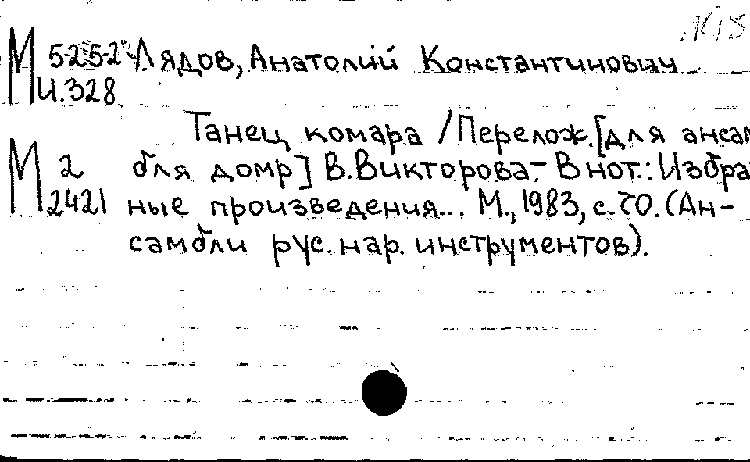 М 5-25-2 Лядов, Анатолий Константинович
И.328
Танец комара / Перелож. [для ансам
М 2 бля домр] В. Викторова.- В нот.: Избра
2421 ные произведения... М., 1983, с. 70. (Ан-
самбли рус. нар. инструментов).